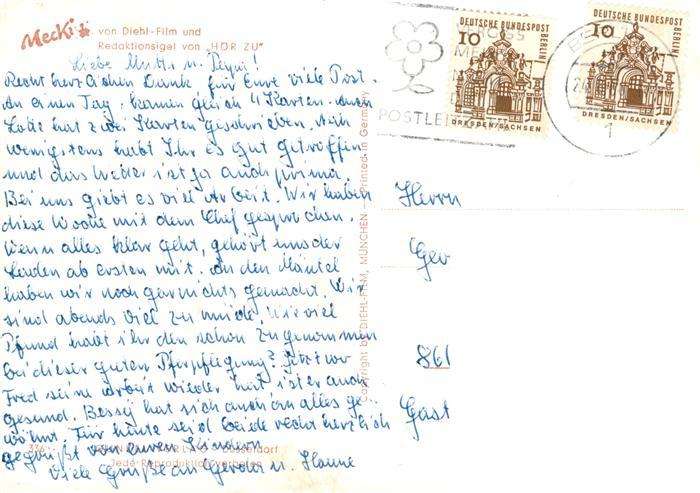 Mecki
von Diehl-Film und
Redaktionsigel von „HÖR ZU"
Liebe Mutti u. Pappi!
Recht herzlichen Dank für Eure viele Post.
An einen Tag kamen gleich 4 Karten. Auch
hat zwei Karten geschrieben. Na
wenigstens habt Ihr es gut getroffen
und das Wetter ist ja auch prima.
Bei uns giebt es viel Arbeit. Wir haben
diese Woche mit dem Chef gesprochen.
Wenn alles klar geht, gehört uns der
Laden ab ersten mit. An den Mäntel
haben wir noch garnichts gemacht. Wir
sind abends viel zu müde. Wieviel
Pfund habt ihr den schon zugenommen
bei dieser guten Pferpflegung? Jetzt wo
Fred seine Arbeit wieder hat ist er auch
gesund. Bessy hat sich auch an alles ge
wöhnt. Für heute seid beide recht herzlich
gegrüßt von euren Kindern
Viele Grüße an Gerda u. Hanne
Düsseldorf
Jede Reproduktion verboten
Copyright by DIEHL-FILM, MÜNCHEN
Printed in Germany
POSTLEIT
DEUTSCHE BUNDESPOST
BERLIN
10
DRESDEN/SACHSEN
DEUTSCHE BUNDESPOST
BERLIN
10
DRESDEN/SACHSEN
1
Herrn
Geo
861
Gast